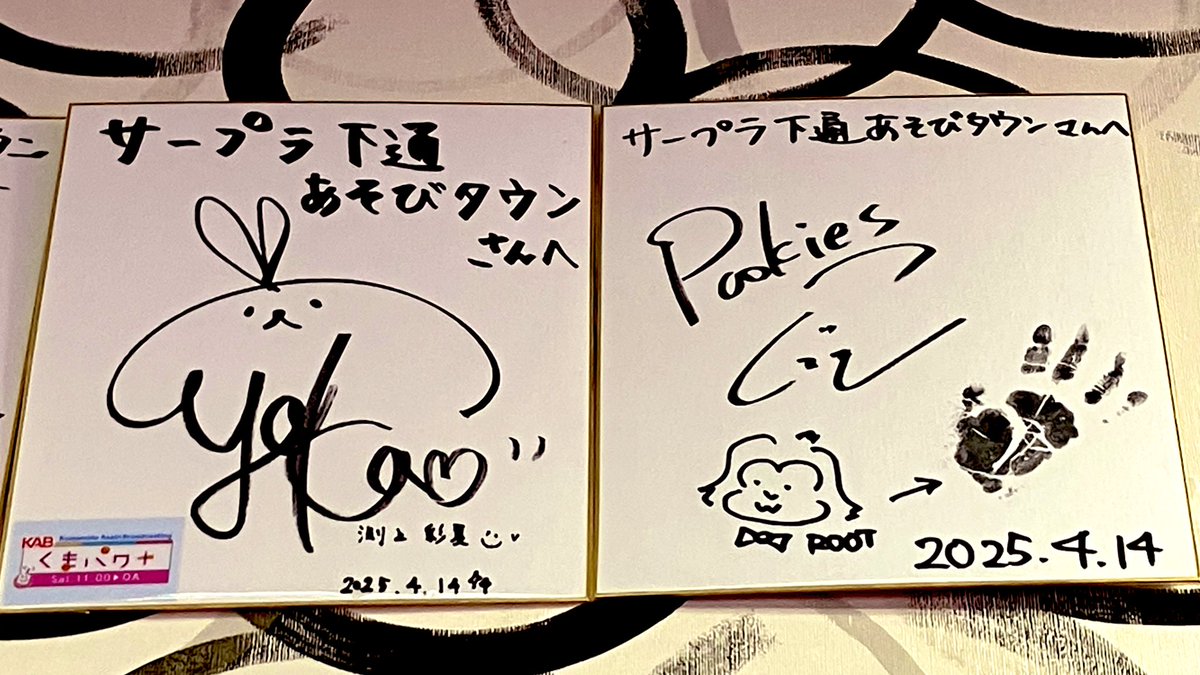 サープラ下通
あそびタウン
さんへ
渕上 彩夏
2025.4.14
KAB
くまパワ+
Sat.11:00▶OA
サープラ下通あそびタウンさんへ
Pookies
ROOT
2025.4.14